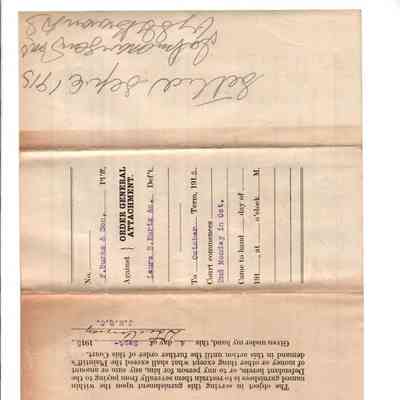 Settled Sep
1915
No.
F. Burks & Son, Pl'ff.
Against } ORDER GENERAL
ATTACHMENT.
Laura B. Hurtz &c. Def't.
To October Term, 1915.
Court commences
2nd Monday in Oct.
Came to hand day of
191 at o'clock M.
The object in serving this garnishment upon the within
named garnishees is to restrain them severally from paying to the
Defendant herein, or to any person for him, any sum or amount
of money or other thing except what shall exceed the Plaintiff's
demand in this action until the further order of this Court.
Given under my hand, this 4 day of Sept. 1915.